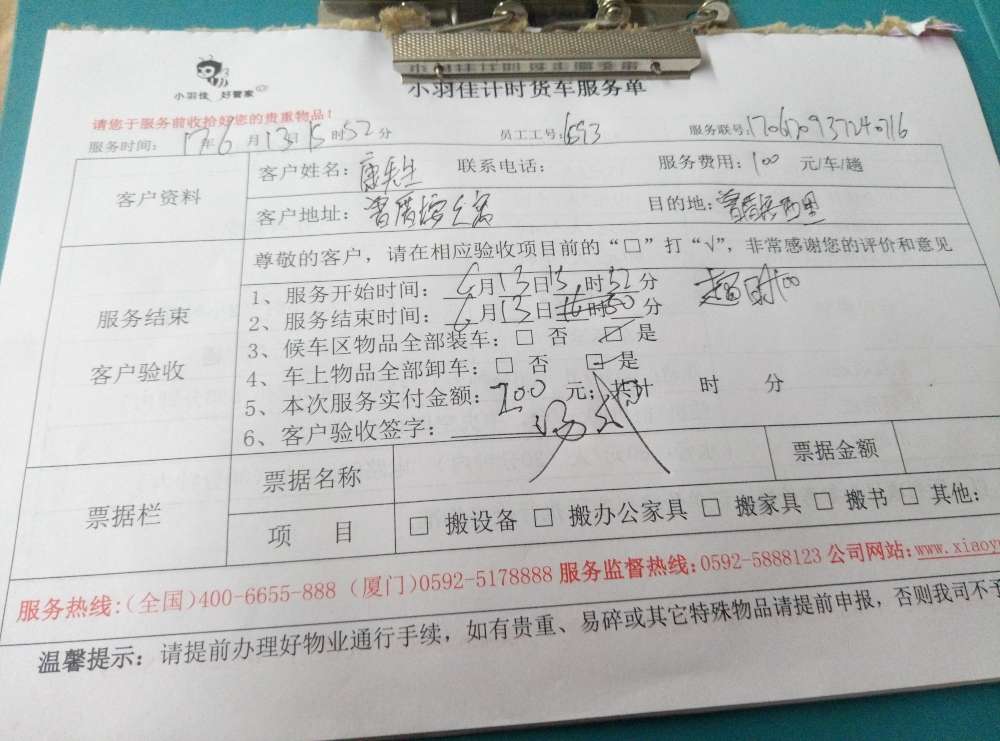 小羽佳 好管家
小羽佳计时货车服务单
请您于服务前收拾好您的贵重物品!
服务时间: 17年6月13日15时52分 员工工号: 服务联号:
客户资料
客户姓名:康先生 联系电话: 服务费用:100 元/车/趟
客户地址: 目的地:
尊敬的客户,请在相应验收项目前的“□”打“√”,非常感谢您的评价和意见
服务结束
客户验收
1、服务开始时间:6月13日15时52分 超时100
2、服务结束时间:6月13日16时50分
3、候车区物品全部装车:□ 否 ☑ 是
4、车上物品全部卸车:□ 否 ☑ 是
5、本次服务实付金额:200 元;共计 时 分
6、客户验收签字:
票据栏
票据名称 票据金额
项 目 □ 搬设备 □ 搬办公家具 □ 搬家具 □ 搬书 □ 其他:
服务热线:(全国)400-6655-888 (厦门)0592-5178888 服务监督热线:0592-5888123 公司网站:www.xiaoy
温馨提示:请提前办理好物业通行手续,如有贵重、易碎或其它特殊物品请提前申报,否则我司不予